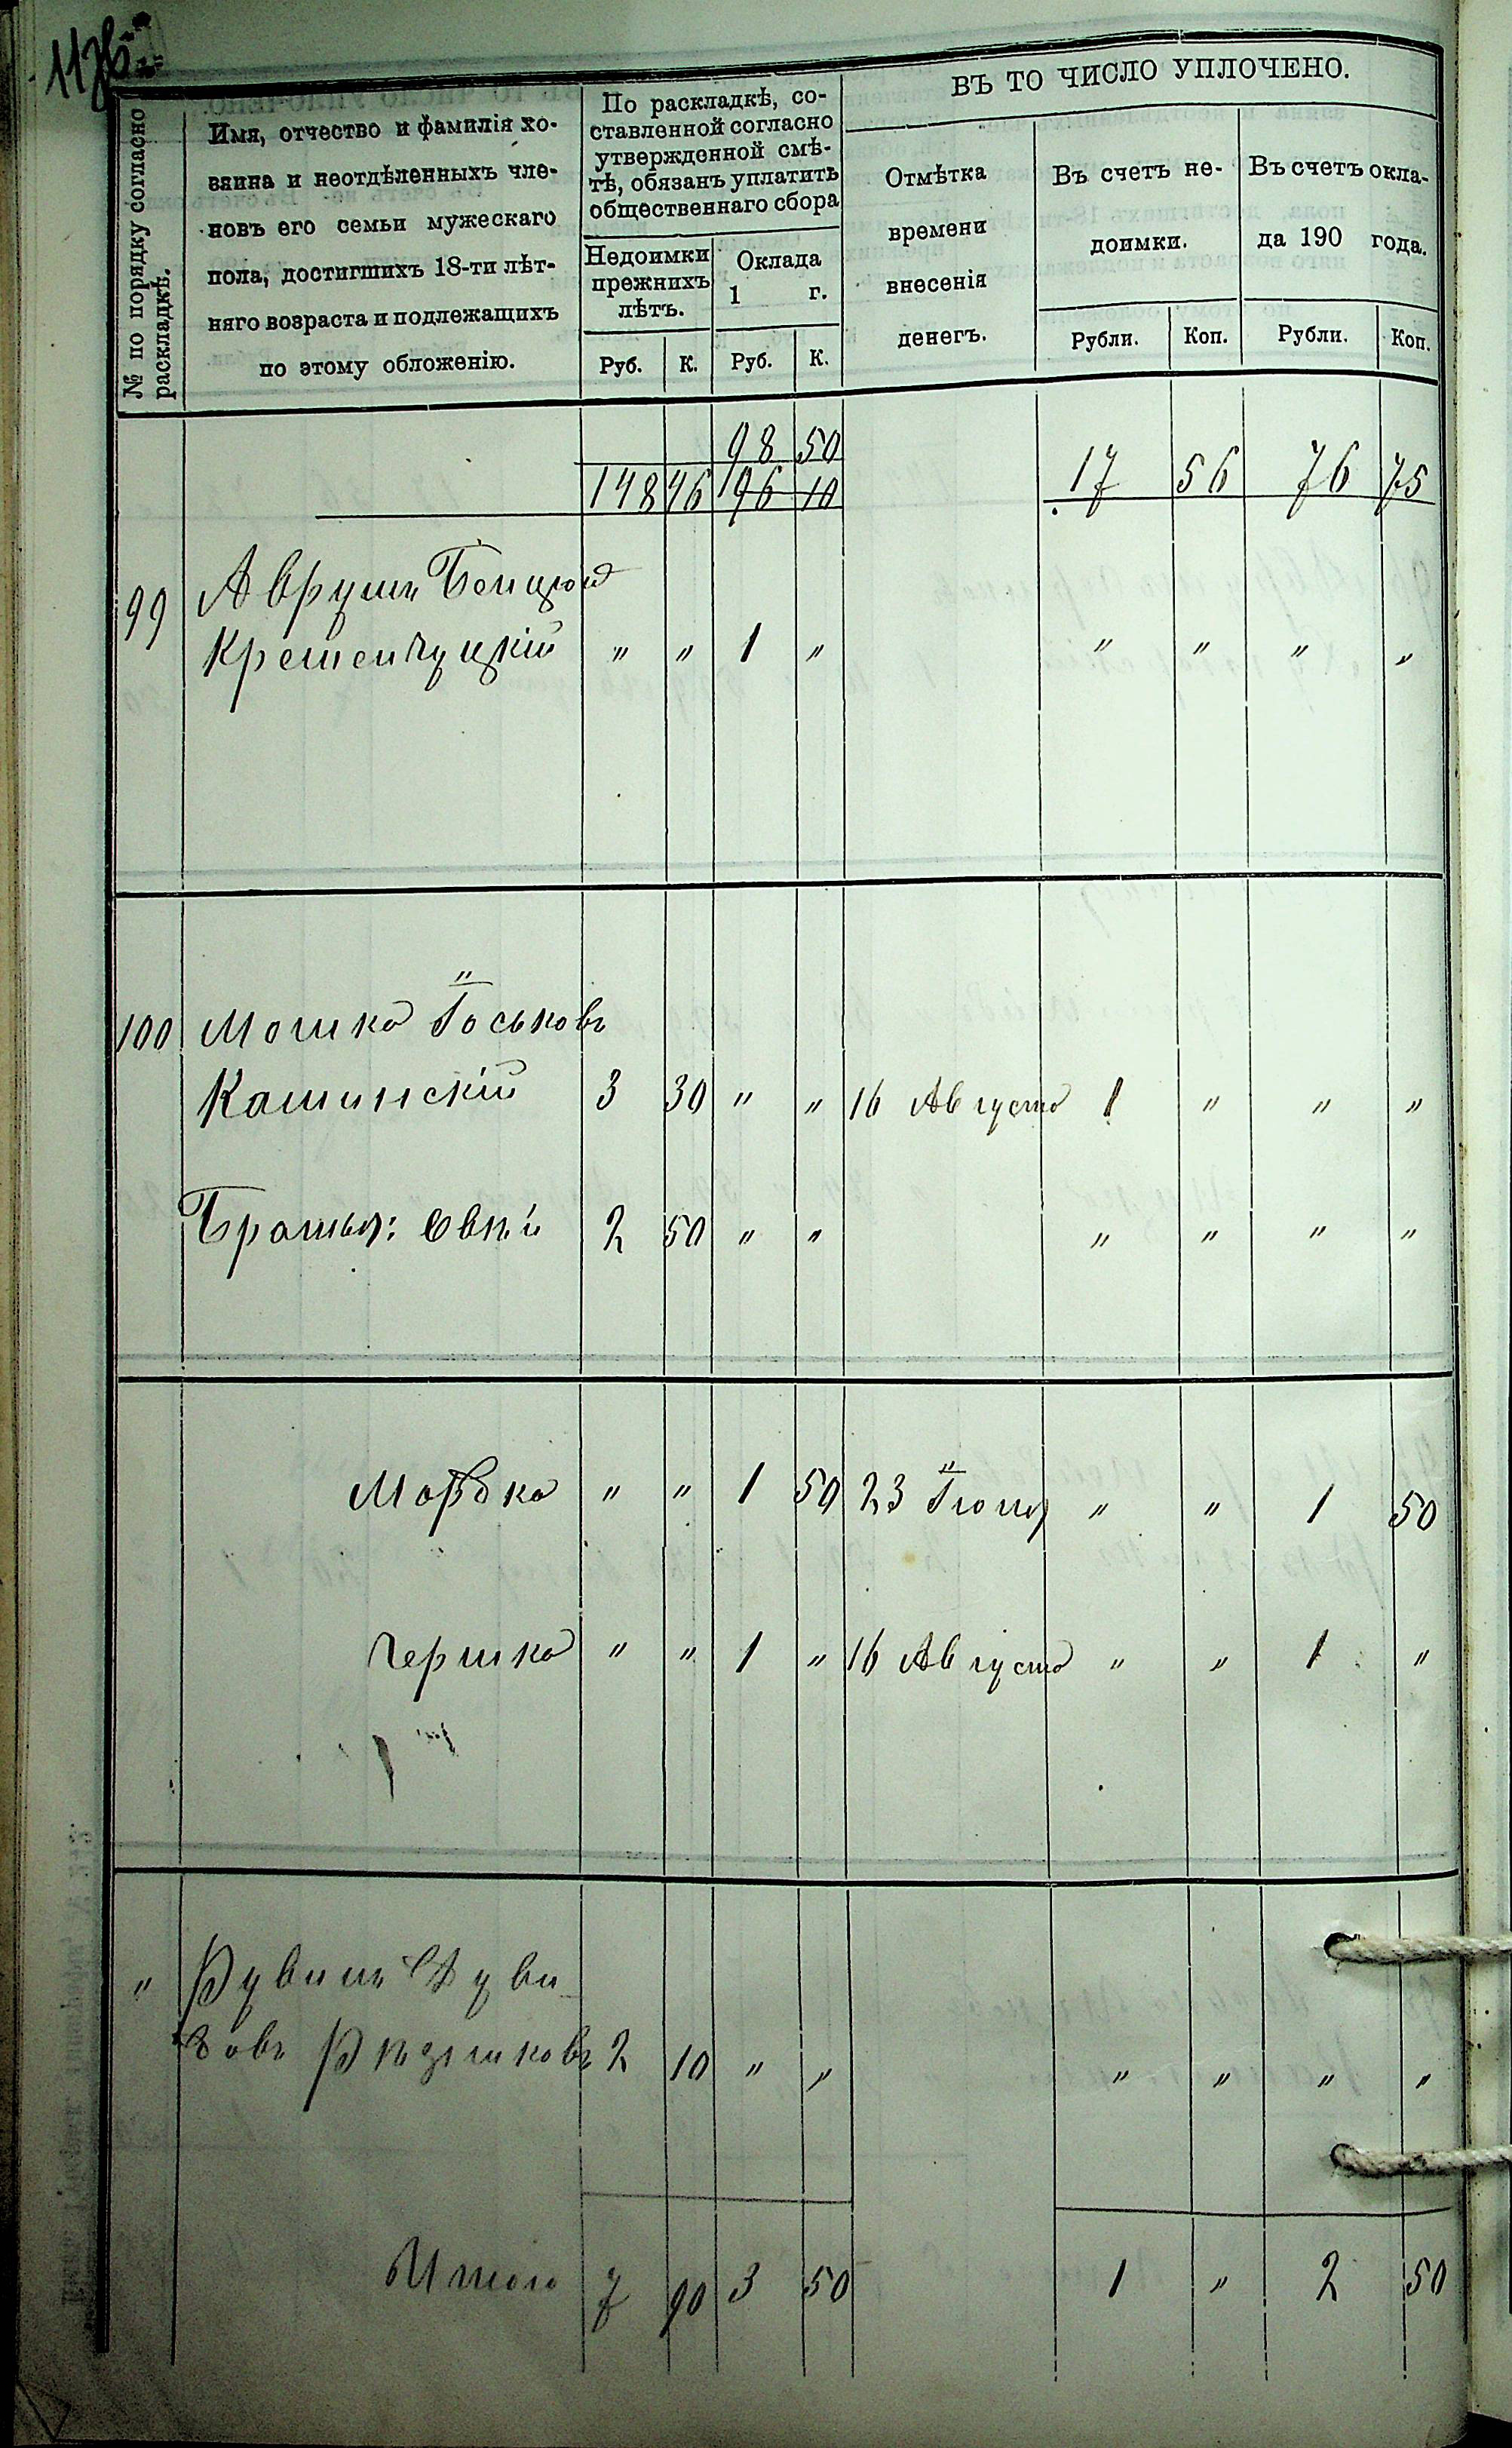 № по порядку согласно раскладкѣ.
Имя, отчество и фамилія хо-
зяина и неотдѣленныхъ чле-
новъ его семьи мужескаго
пола, достигшихъ 18-ти лѣт-
няго возраста и подлежащихъ
по этому обложенію.
По раскладкѣ, со-
ставленной согласно
утвержденной смѣ-
тѣ, обязанъ уплатить
общественнаго сбора
Недоимки
прежнихъ
лѣтъ.
Оклада
1 г.
Руб. К. Руб. К.
ВЪ ТО ЧИСЛО УПЛОЧЕНО.
Отмѣтка
времени
внесенія
денегъ.
Въ счетъ не-
доимки.
Въ счетъ окла-
да 190 года.
Рубли. Коп. Рубли. Коп.
98 50
148 46 196 10 17 56 76 75
99 Аврумъ Бенцiонъ
Кременчуцкій " " 1 " " " " "
100 Мошка Іоськовъ
Кашинскій 3 30 " " 16 Августа 1 " " "
Братья: Овсѣй 2 50 " " " " " "
Мордка " " 1 50 23 Іюня " " 1 50
Гершка " " 1 " 16 Августа " " 1 "
" Рувинъ Дуви-
довъ 2 10 " " " " " "
Итого 7 90 3 50 1 " 2 50